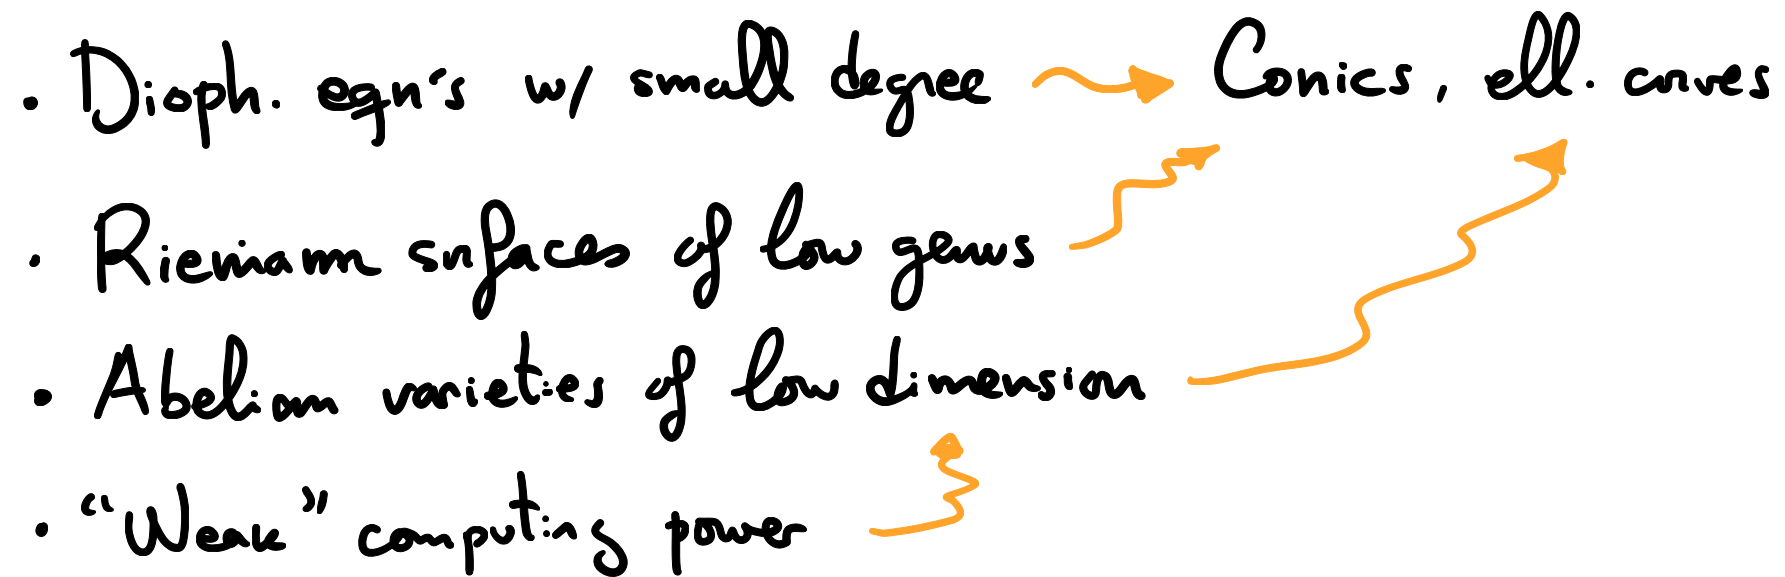 • Dioph. eqn's w/ small degree → Conics, ell. curves
• Riemann surfaces of low genus
• Abelian varieties of low dimension
• "Weak" computing power